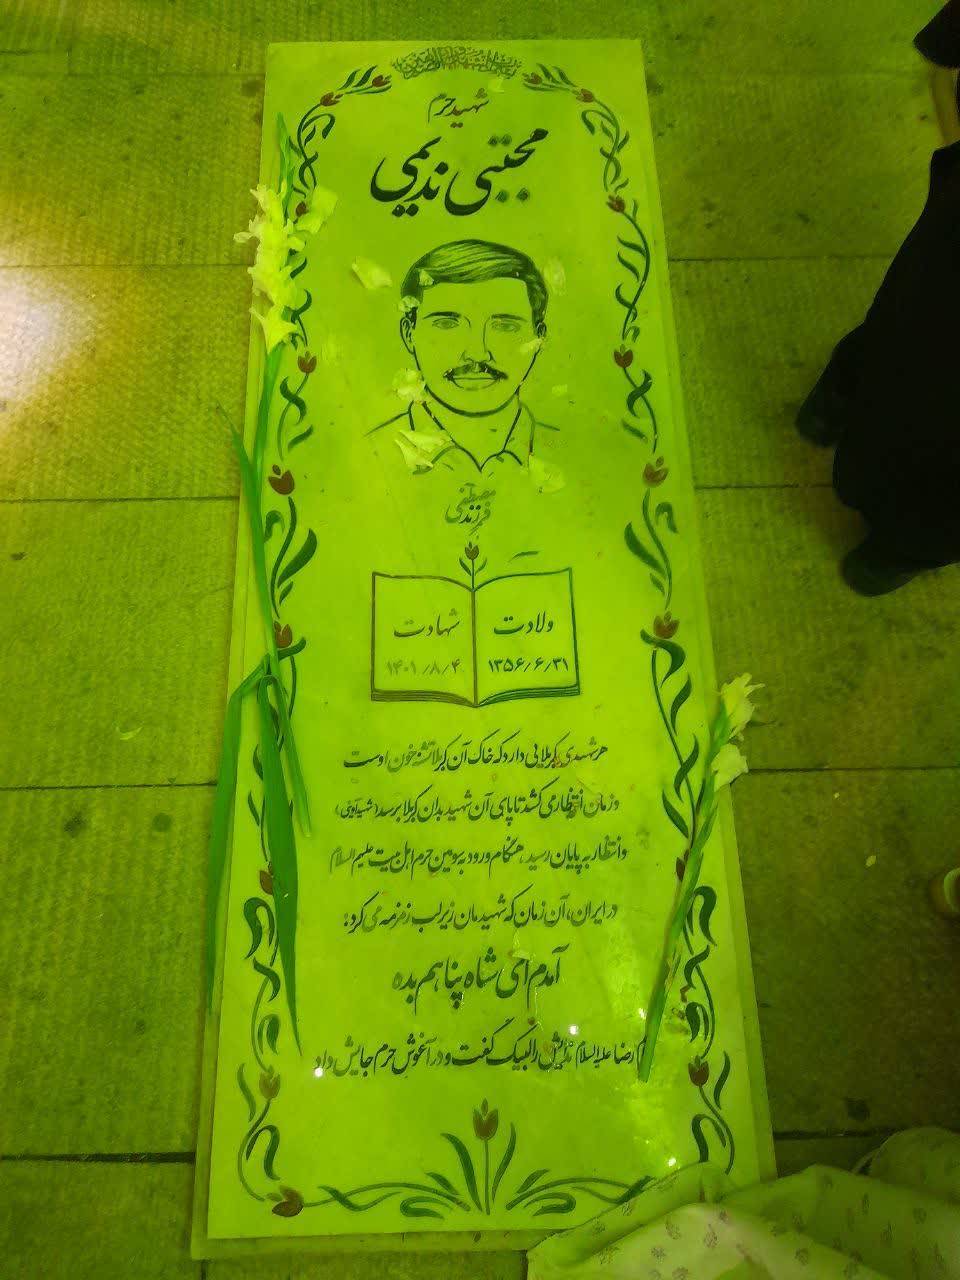 شهید حرم
مجتبی ندیمی
فرزند مصطفی
ولادت
۱۳۵۶/۶/۳۱
شهادت
۱۴۰۱/۸/۴
هر شهیدی کربلایی دارد که خاک آن کربلا تشنه خون اوست
و زمان انتظار می کشد تا پای آن شهید بدان کربلا برسد (شهید آوینی)
و انتظار به پایان رسید، هنگام ورود به سومین حرم اهل بیت علیهم السلام
در ایران، آن زمان که شهیدمان زیر لب زمزمه می کرد:
آمدم ای شاه پناهم بده
رضا علیه السلام را لبیک گفت و در آغوش حرم جایش داد